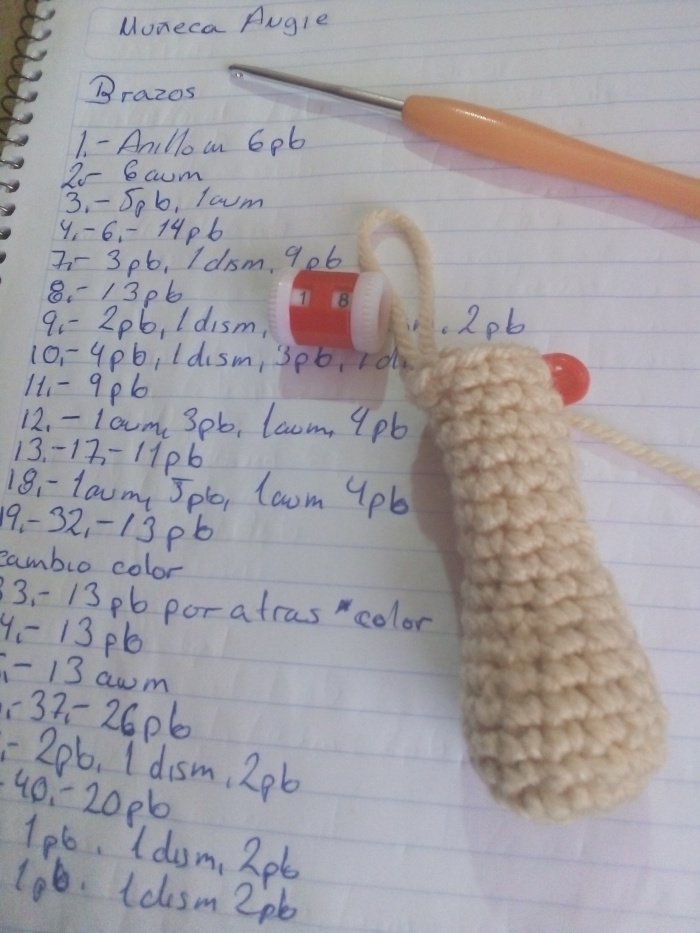 Muñeca Angie
Brazos
1.- Anillo en 6pb
2.- 6 aum
3.- 5pb, 1aum
4.-6.- 14pb
7.- 3pb, 1dism, 9pb
1 8
8.- 13pb
9.- 2pb, 1dism, 2pb
10.- 4pb, 1dism, 3pb, 1di
11.- 9pb
12.- 1aum, 3pb, 1aum, 4pb
13.-17.- 11pb
18.- 1aum, 5pb, 1aum 4pb
19.-32.- 13pb
cambio color
33.- 13pb por atras *color
4.- 13pb
.- 13 aum
.-37.- 26pb
.- 2pb, 1dism, 2pb
40.- 20pb
1pb. 1dism, 2pb
1pb. 1dism 2pb